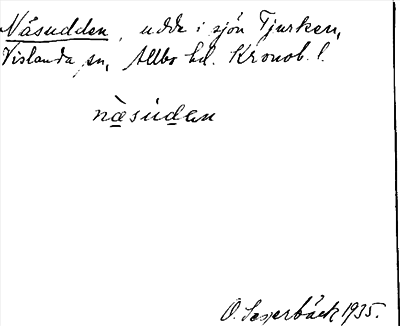 Näsudden, udde i sjön Tjurken,
Vislanda sn, Allbo hd. Kronob. l.
nàsúden
O. 1935.